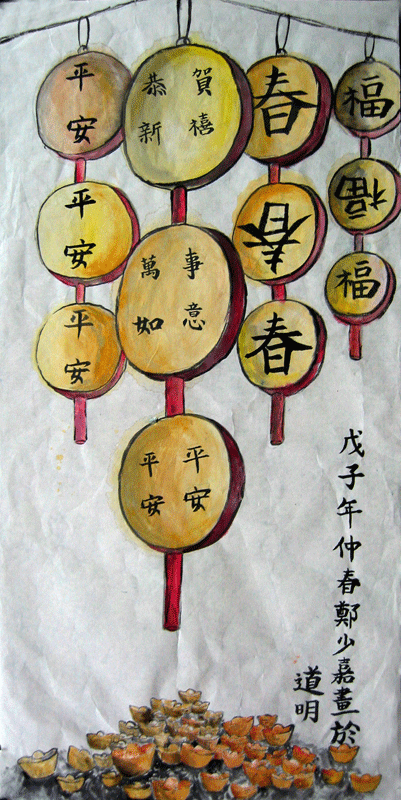 平安
平安
平安
恭賀
新禧
萬事
如意
平安
平安
春
春
春
福
福
福
戊子年仲春鄭少嘉畫於
道明